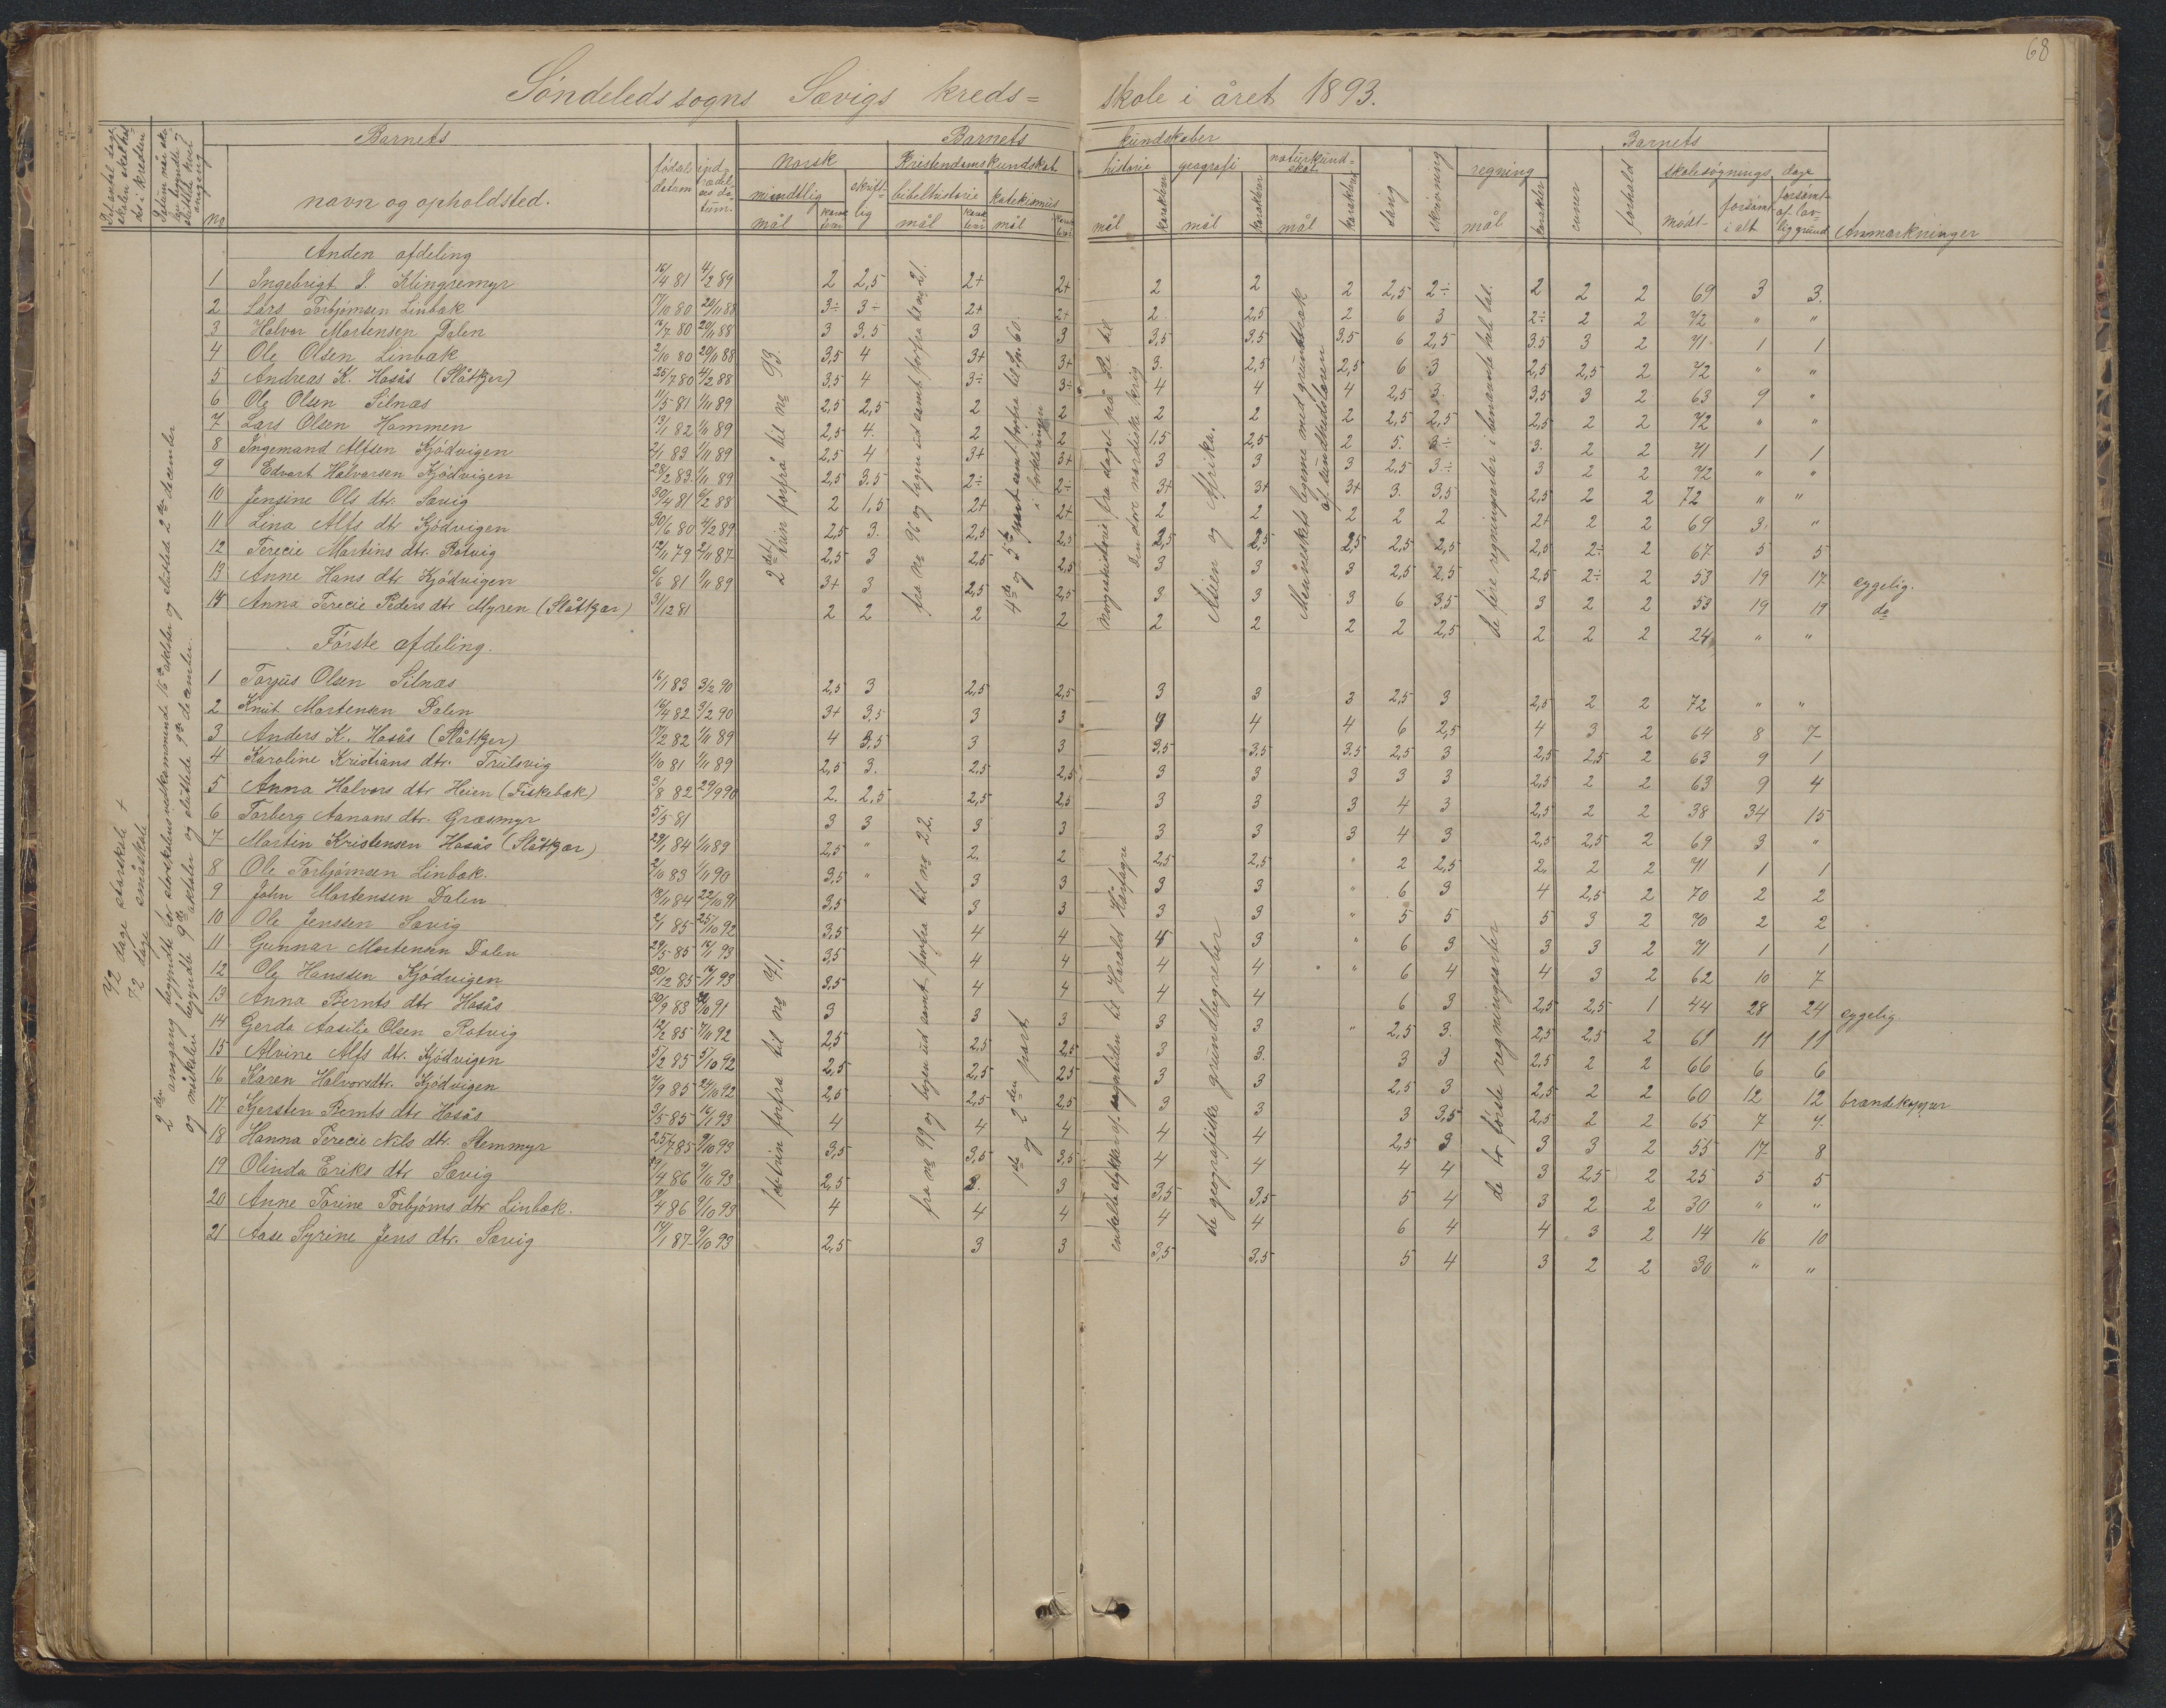 68
Söndeleds sogns Sævigs kreds= skole i året 1893.
Barnets
Barnets kundskaber
Barnets
no
navn og opholdsted.
fødsels datum
indtrædelses datum.
norsk
mundtlig
mål
karakter
skriftlig
Kristendomskundskab
bibelhistorie
mål
karakter
katekismus
mål
karakter
historie
mål
karakter
geografi
mål
karakter
naturkundskab
mål
karakter
sang
skrivning
regning
mål
karakter
evner
forhold
skolesøgnings dage
mødt
forsømt i alt
forsømt af lovlig grund
Anmærkninger
72 dage storskole +
72 dage småskole
2den omgang begyndte for storskolens vedkommende 16de oktober og sluttede 2den december
og småskolen begyndte 9de oktober og sluttede 9de december.
Anden afdeling
1 Ingebrigt J. Klingremyr 16/4 81 4/2 89 2 2,5 2+ 2+ 2 2 2 2,5 2÷ 2 2 2 69 3 3.
2 Lars Torbjörnsen Linbæk 17/10 80 20/11 88 3÷ 3÷ 2+ 2+ 2 2,5 2 6 3 2÷ 2 2 72 " "
3 Halvor Mortensen Dalen 80 20/11 88 3 3,5 3 3 3,5 3,5 3,5 6 2,5 3.5 3 2 71 1 1
4 Ole Olsen Linbæk 2/10 80 20/11 88 3,5 4 3+ 3+ 3. 2,5 2,5 6 3 2,5 2,5 2 72 " "
5 Andreas K. Hasås (Slåtkjer) 25/7 80 4/2 88 3,5 4 3÷ 3÷ 4 4 4 2,5 3. 3,5 3 2 63 9 "
6 Ole Olsen Silnæs 11/5 81 1/11 89 2,5 2,5 2 2 2 2 2 2,5 2,5 2,5 2 2 72 " "
7 Lars Olsen Hammen 13/1 82 1/11 89 2,5 4. 2 2 1,5 2,5 2 5. 3÷ 3. 2 2 71 1 1
8 Ingemand Alfsen Kjödvigen 2/1 83 1/11 89 2,5 4 3+ 3+ 3 3 3 2,5 3÷ 3 2 2 72 " "
9 Edvart Halvorsen Kjödvigen 28/2 83. 1/11 89 2,5 3.5 2÷ 2÷ 3+ 3+ 3+ 3. 3,5 2,5 2 2 72 " "
10 Jensine Ols dtr. Sævig 30/4 81 6/2 88 2 1,5 2+ 2+ 2 2 2 2 2 2+ 2 2 69 3. "
11 Lina Alfs dtr Kjödvigen 30/6 80 4/2 89 2,5 3. 2,5 2,5 2,5 2,5 2,5 2,5 2,5 2,5 2÷ 2 67 5 5
12 Terecie Martins dtr. Rotvig 12/11 79 2/11 87 2,5 3 2,5 2,5 3 3 3 2,5 2,5 2,5 2÷ 2 53 19 17 sygelig.
13 Anne Hans dtr Kjödvigen 6/6 81 1/11 89 3+ 3 2,5 2,5 3 3 3 6 3,5 3 2 2 53 19 19 do
14 Anna Terecie Peders dtr Myren (Slåtkjær) 31/12 81 2 2 2 2 2 2 2 2 2,5 2 2 2 24 " "
2det trin forfra til no 93.
fra no 96 og bogen ud samt forfra til no 21.
4de og 5te part samt forfra til sp. 60. i forklaringen
Norgeshistorie fra slaget på Re til Den store nordiske krig
Asien og Afrika.
Menneskets legeme med grundtræk af sundhedslæren
de fire regningsarter i benævnte hele tal.
Første afdeling.
1 Torjus Olsen Silnæs 16/1 83 3/2 90 2,5 3 2,5 2,5 3 3 3 2,5 3 2,5 2 2 72 " "
2 Knut Mortensen Dalen 16/4 82 3/2 90 3+ 3,5 3 3 4 4 4 6 2,5 4 3 2 64 8 7
3 Anders K. Hasås (Slåtkjer) 17/2 82 1/11 89 4 3,5 3 3 3,5 3,5 3.5 2,5 3 2,5 2,5 2 63 9 1
4 Karoline Kristians dtr. Trulsvig 1/10 81 1/11 89 2,5 3. 2,5 2,5 3 3 3 3 3 2,5 2 2 63 9 4
5 Anna Halvors dtr Heien (Fiskebæk) 3/8 82 29/9 90 2. 2,5 2,5 2,5 3 3 3 4 3 2,5 2 2 38 34 15
6 Torberg Aanons dtr. Græsmyr 5/5 81 3 3 3 3 3 3 3 4 3 2,5 2,5 2 69 3 "
7 Martin Kristensen Hasås (Slåtkjær) 84 1/11 89 2,5 " 2. 2 2,5 2,5 " 2 2,5 2. 2 2 71 1 1
8 Ole Torbjörnsen Linbæk. 2/10 83 1/11 90 3,5 " 3 3 3 3 " 6 3 4 2,5 2 70 2 2
9 John Mortensen Dalen 84 22/10 91 3,5 3 3 3 3 " 5 5 5 3 2 70 2 2
10 Ole Jenssen Sævig 2/1 85 25/10 92 3,5 4 4 4 3 " 6 3 3 3 2 71 1 1
11 Gunnar Mortensen Dalen 29/5 85 93 3,5 4 4 4 4 " 6 4 4 3 2 62 10 7
12 Ole Hanssen Kjödvigen 30/12 85 93 3.5 4 4 4 4 6 3 2,5 2,5 1 44 28 24 sygelig
13 Anna Bernts dtr Hasås 30/9 83 91 3 3 3 3 3 " 2,5 3. 2,5 2,5 2 61 11 11
14 Gerda Aasilie Olsen Rotvig 12/2 85 7/11 92 2,5 2,5 2,5 3 3. 3 3 2,5 2 2 66 6 6
15 Alvine Alfs dtr. Kjödvigen 5/2 85 5/10 92 2,5 2,5 2,5 3 3 2,5 3 2,5 2 2 60 12 12 brændekopper
16 Karen Halvorsdtr. Kjödvigen 7/9 85 24/10 92 2,5 2,5 2,5 3 3 3 3,5 2,5 2 2 65 7 7.
17 Kjersten Bernts dtr Hasås 3/5 85 93 4 4 4 4 4 2,5 3 3 3 2 55 17 8
18 Hanna Terecie Nils dtr. Stemmyr 25/7 85 9/10 93 3,5 3,5 3,5 4 4 4 4 3 2,5 2 25 5 5
19 Olinda Eriks dtr Sævig 86 9/10 93 2,5 3. 3 3,5 3,5 5 4 3 2 2 30 " "
20 Anne Torine Torbjörns dtr Linbæk. 19/4 86 9/10 93 4 4 4 4 4 6 4 4 3 2 14 16 10
21 Aase Syrine Jens dtr. Sævig 14/1 87 9/10 93 2,5 3 3 3,5 3,5 5 4 3 2 2 30 " "
1ste trin forfra til no 41.
fra no 99 og bogen ud samt forfra til no 22.
1ste og 2den part
enkelte stykker af sagntiden til Harald Hårfagre
de geografiske grundbegreber
de to første regningsarter